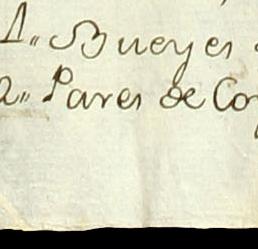 1,, Bueyes
2,, Pares de Co